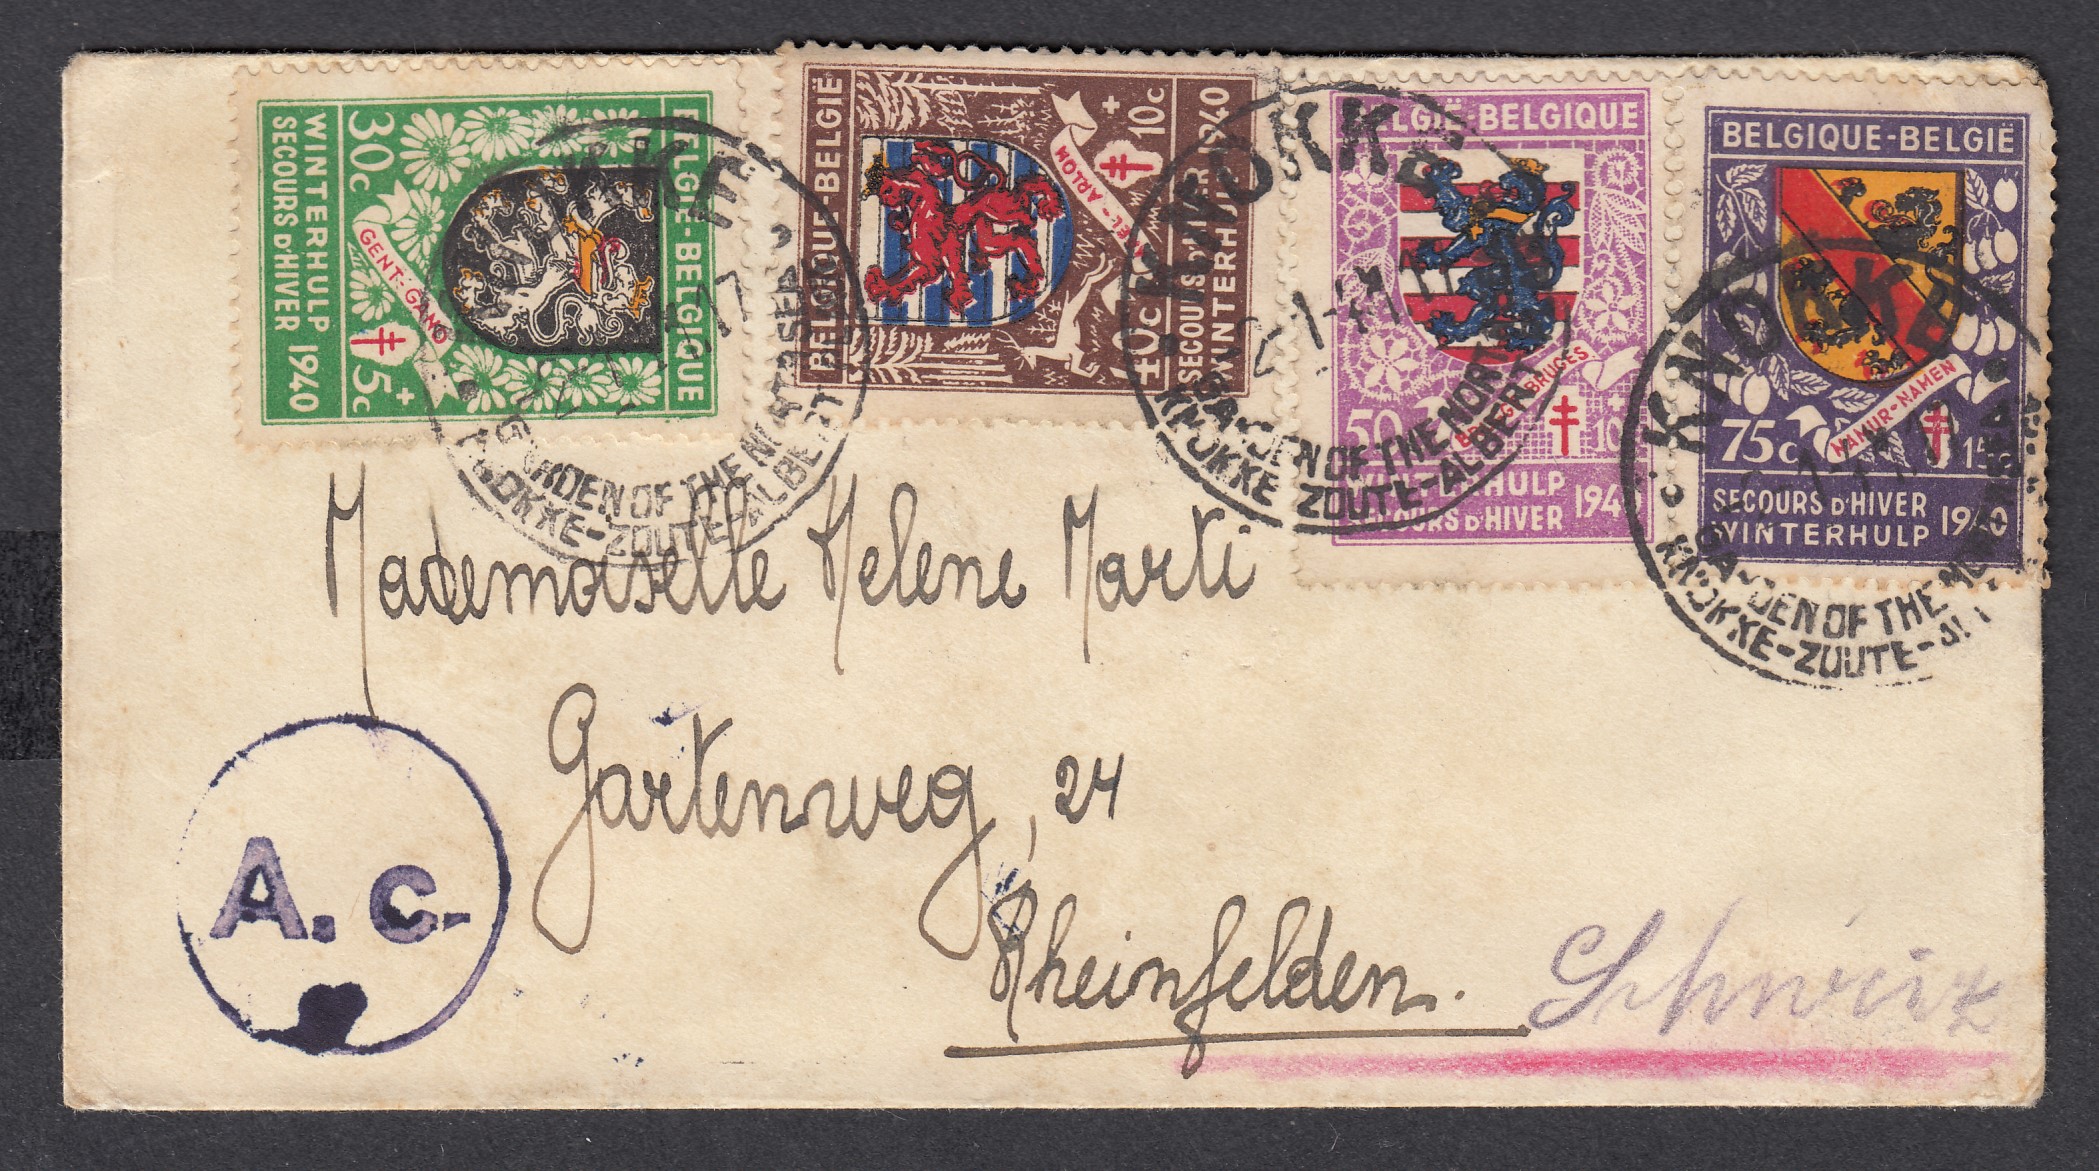 BELGIË-BELGIQUE
30c
+5c
GENT-GAND
WINTERHULP
SECOURS D'HIVER 1940
BELGIQUE-BELGIË
40c
+10c
ARLON
SECOURS D'HIVER
WINTERHULP 1940
BELGIË-BELGIQUE
50
10
BRUGGE-BRUGES
WINTERHULP
SECOURS D'HIVER 1940
BELGIQUE-BELGIË
75c
15c
NAMUR-NAMEN
SECOURS D'HIVER
WINTERHULP 1940
KNOKKE
GARDEN OF THE NORTHSEA
KNOKKE-ZOUTE-ALBERT
KNOKKE
GARDEN OF THE NORTH
KNOKKE-ZOUTE-ALBERT
KNOKKE
GARDEN OF THE NORTHSEA
KNOKKE-ZOUTE-AL
Mademoiselle Helene Marti
Gartenweg, 24
Rheinfelden. Schweiz
A.c.